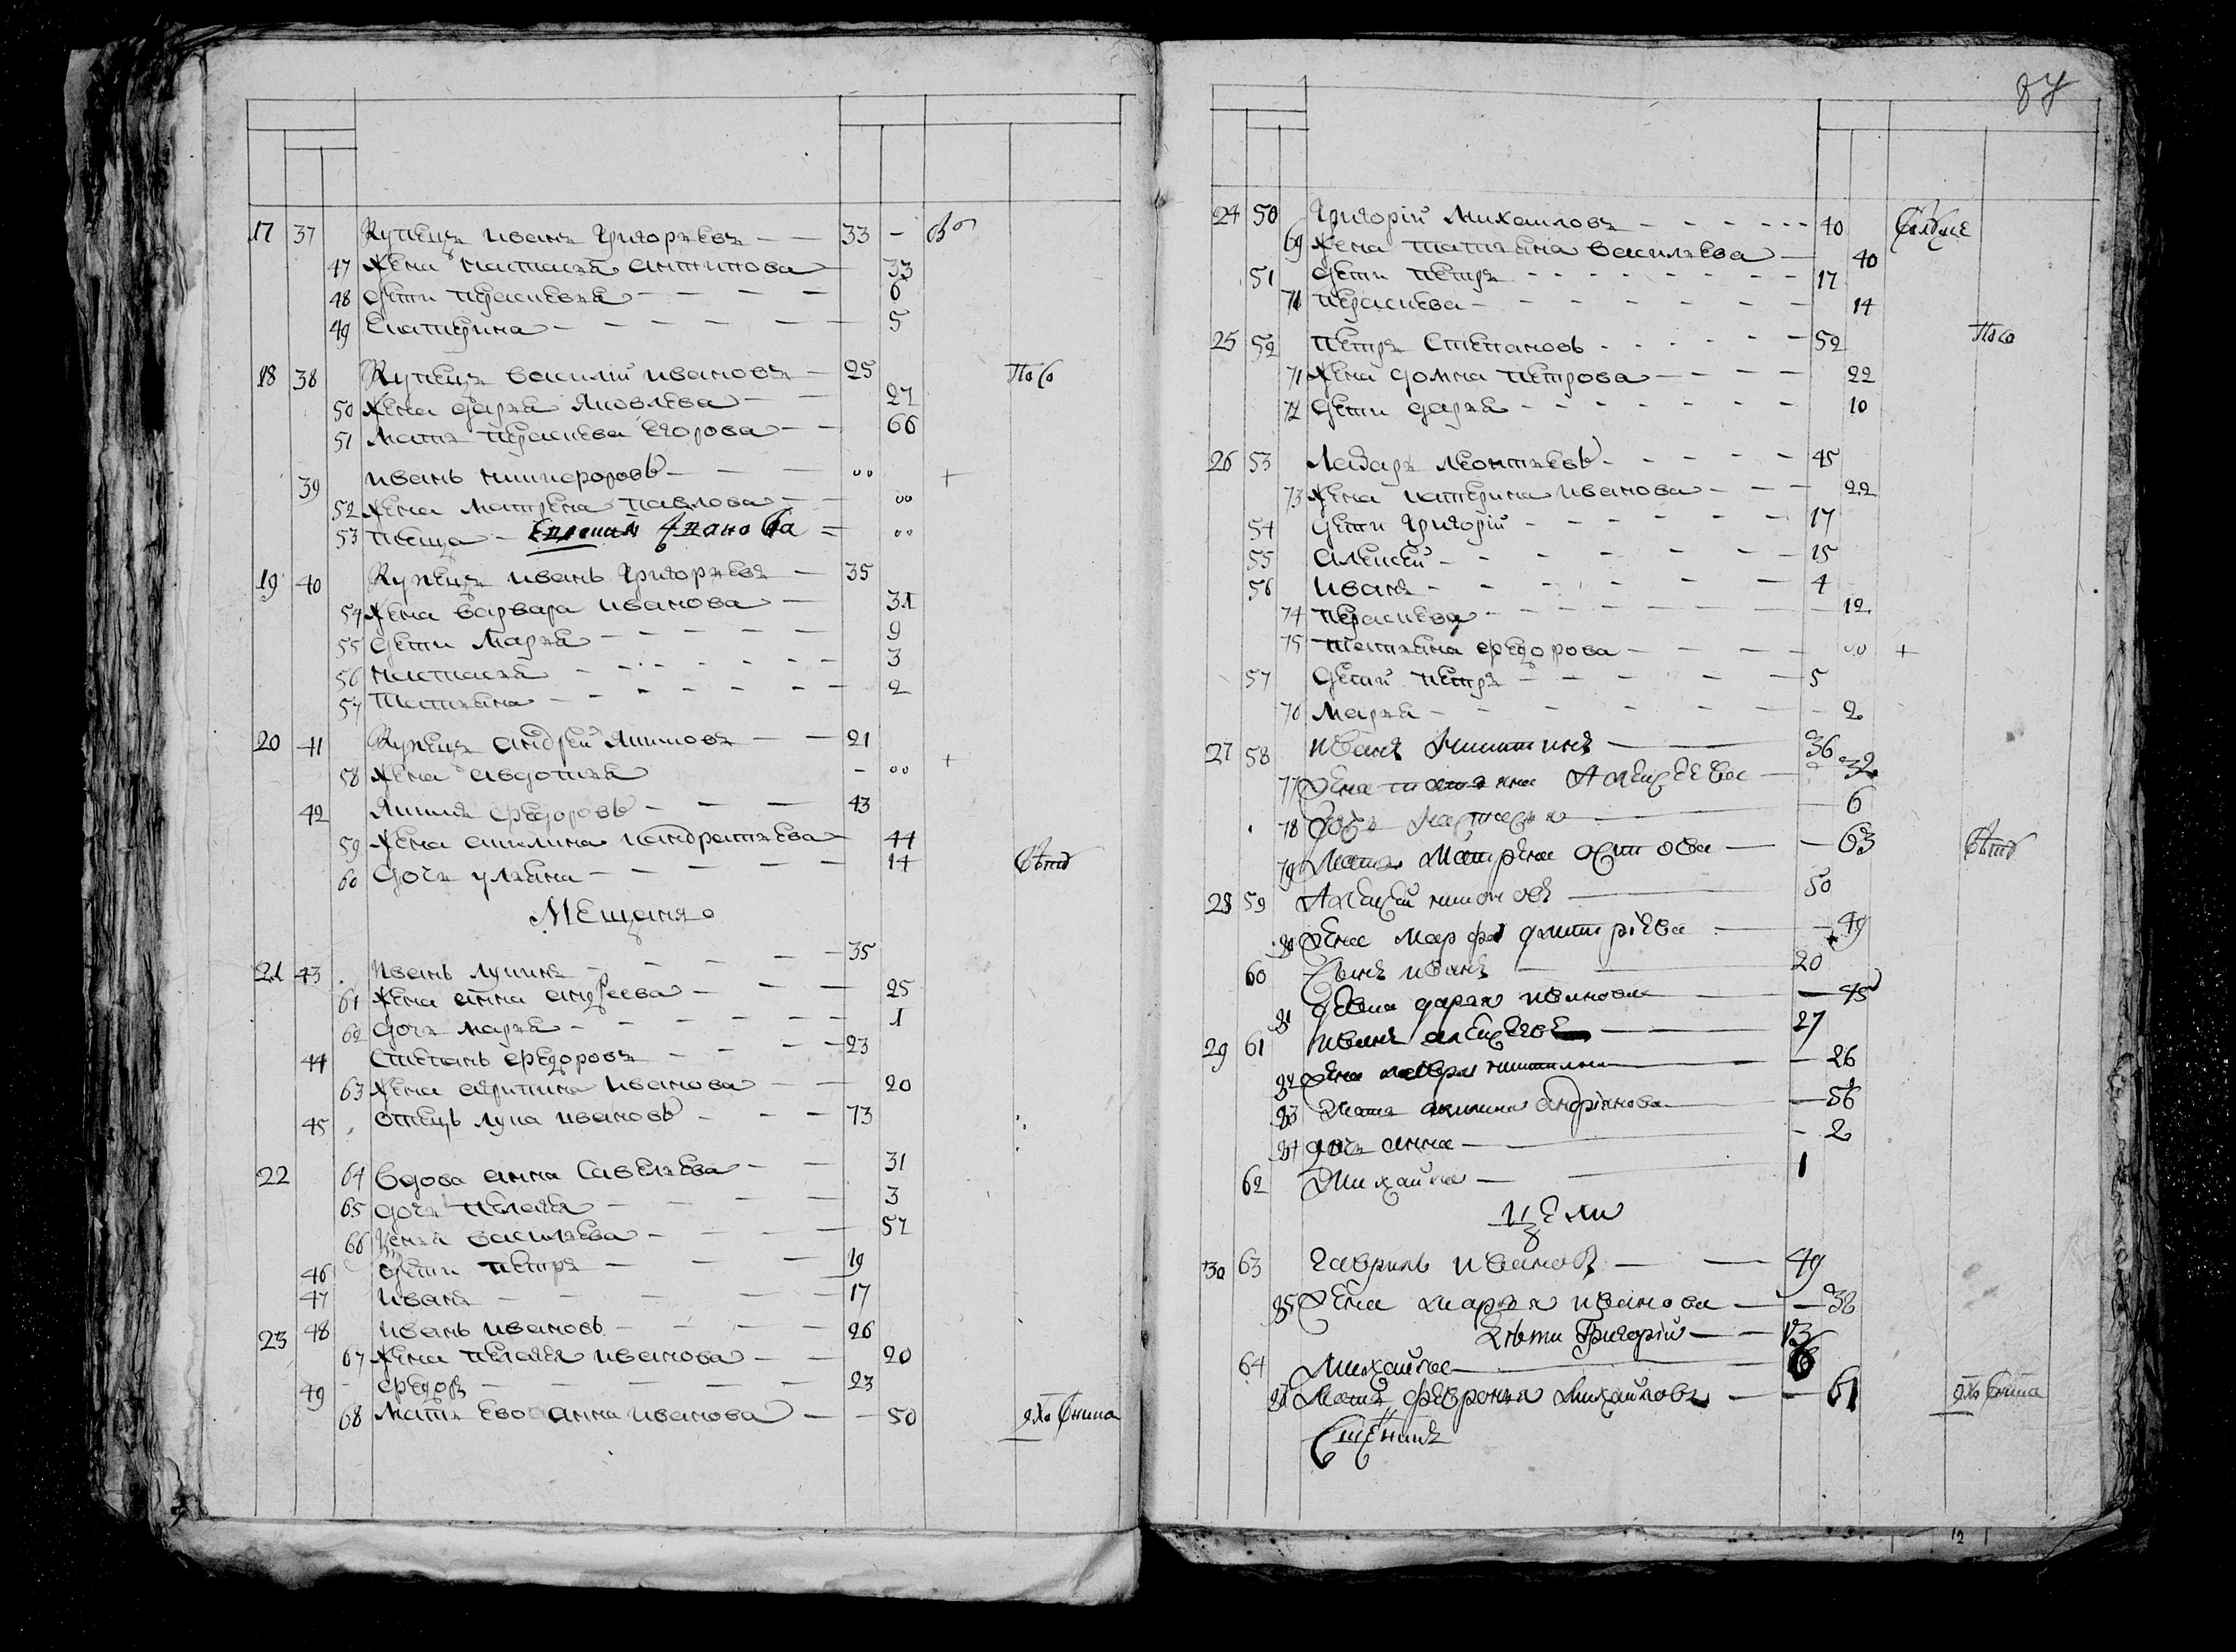 17 37 Купецъ иванъ Григорьевъ 33 -
47 Жена настасья антипова 33
48 Дети прасковья 6
49 Екатерина 5
18 38 Купецъ василiй ивановъ 25 По Со
50 Жена дарья Яковлева 27
51 Мать прасковья Егорова 66
39 иванъ никифоровъ 00 +
52 Жена Матрена павлова 00
53 теща 00
19 40 Купецъ иванъ Григорьевъ 35
54 Жена варвара иванова 31
55 Дети Марья 9
56 настасья 3
57 татьяна 2
20 41 Купецъ андрей Якимовъ 21
58 Жена авдотья - 00 +
42 Якимъ федоровъ 43
59 Жена акилина кандратьева 44
60 дочь ульяна 14
Мещаня
21 43 иванъ лукинъ 35
61 Жена анна андреева 25
62 дочь марья 1
44 Степанъ федоровъ 23
63 Жена иванова 20
45 отецъ лука ивановъ 73
22 64 вдова анна Савельева 31
65 дочь пелагея 3
66 васильева 57
46 дети петръ 19
47 иванъ 17
23 48 иванъ ивановъ 26
67 Жена пелагея иванова 20
49 федоръ 23
68 Мать Ево анна иванова 50
87
24 50 Григорiй Михаиловъ 40
69 Жена татьяна васильева 40
51 Дети петръ 17
70 прасковья 14
25 52 петръ Степановъ 52 По со
71 Жена домна петрова 22
72 Дети дарья 10
26 53 Лазарь леонтьевъ 45
73 Жена катерина иванова 22
54 Дети Григорiй 17
55 алексей 15
56 иванъ 4
74 прасковья 12
75 татьяна федорова 00 +
57 Дети петръ 5
76 Марья 2
27 58 иванъ никитинъ 36
77 Жена татьяна Алексеева 32
78 дочь настасья 6
79 Мать Матрена 63
28 59 Алексей 50
80 Жена Марфа дмитрiева 49
60 Сынъ иванъ 20
81 девка дарья иванова 45
29 61 иванъ алексеевъ 27
82 Жена 26
83 Мать акилина андрiянова 56
84 дочь анна - 2
62 Михайла 1
30 63 гаврилъ ивановъ 49
85 Жена марья иванова 38
дѣти Григорiй 13
64 Михайла 6
Мать февронья Михайлова 61